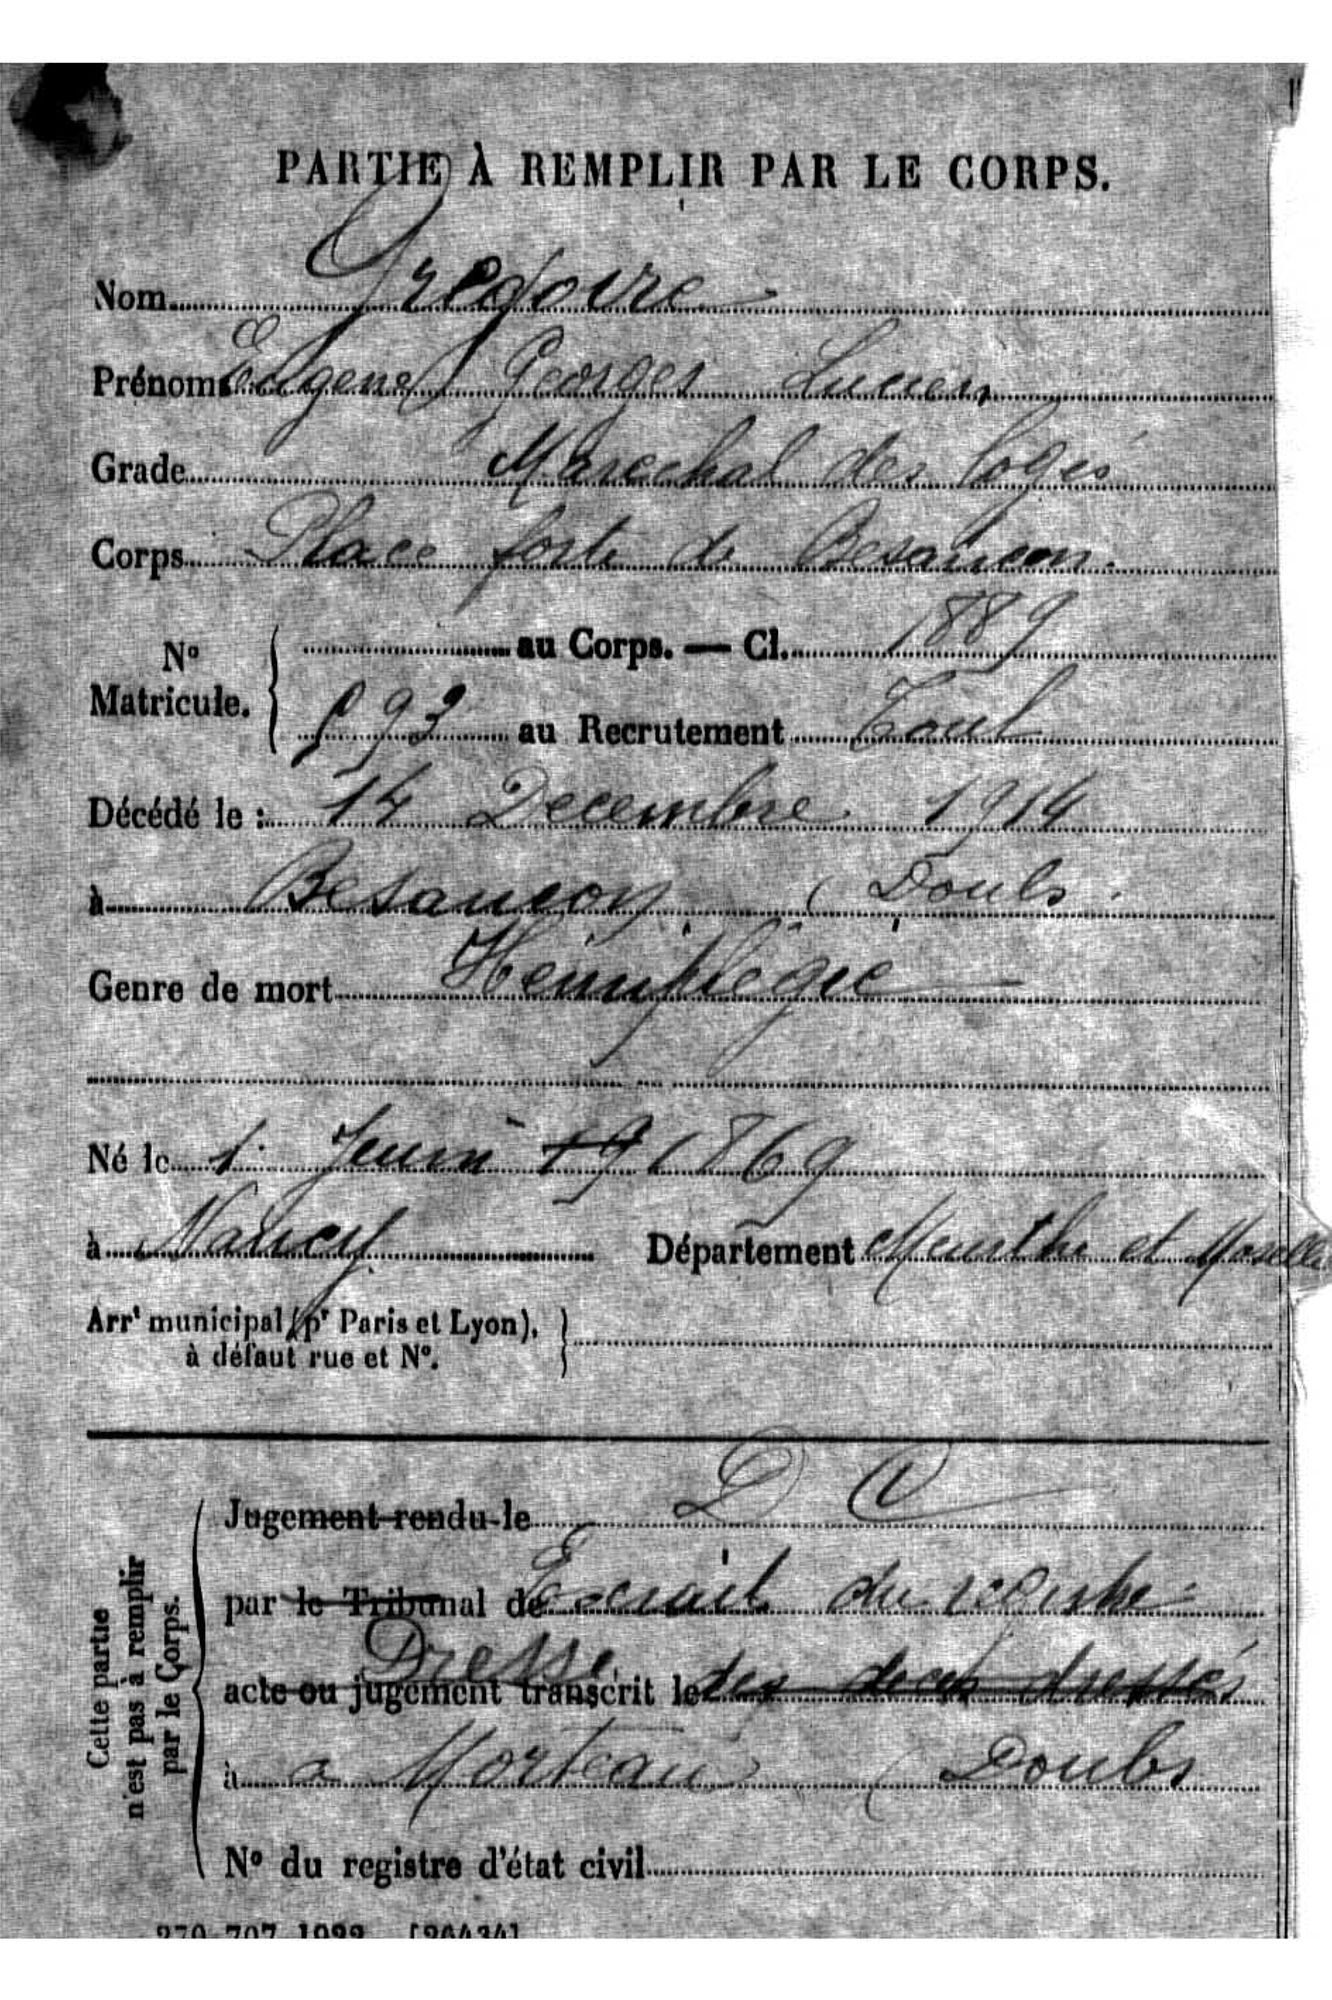 PARTIE À REMPLIR PAR LE CORPS.
Nom Gregoire
Prénoms Eugene Georges Lucien
Grade Marechal des logis
Corps Place forte de Besançon.
N° Matricule. { au Corps. — Cl. 1889
893 au Recrutement Toul
Décédé le : 14 Decembre 1914
à Besancon ( Doubs .
Genre de mort Hémiplégie
Né le 1 Juin 19 1869
à Nancy Département Meurthe et Moselle
Arrt municipal (pr Paris et Lyon),
à défaut rue et N°.
Cette partie n'est pas à remplir par le Corps.
Jugement rendu le D C
par le Tribunal de Extrait du registre
Dresse
acte ou jugement transcrit le des décès dressés
à a Morteau ( Doubs
N° du registre d'état civil
270-707-1922. [26434]